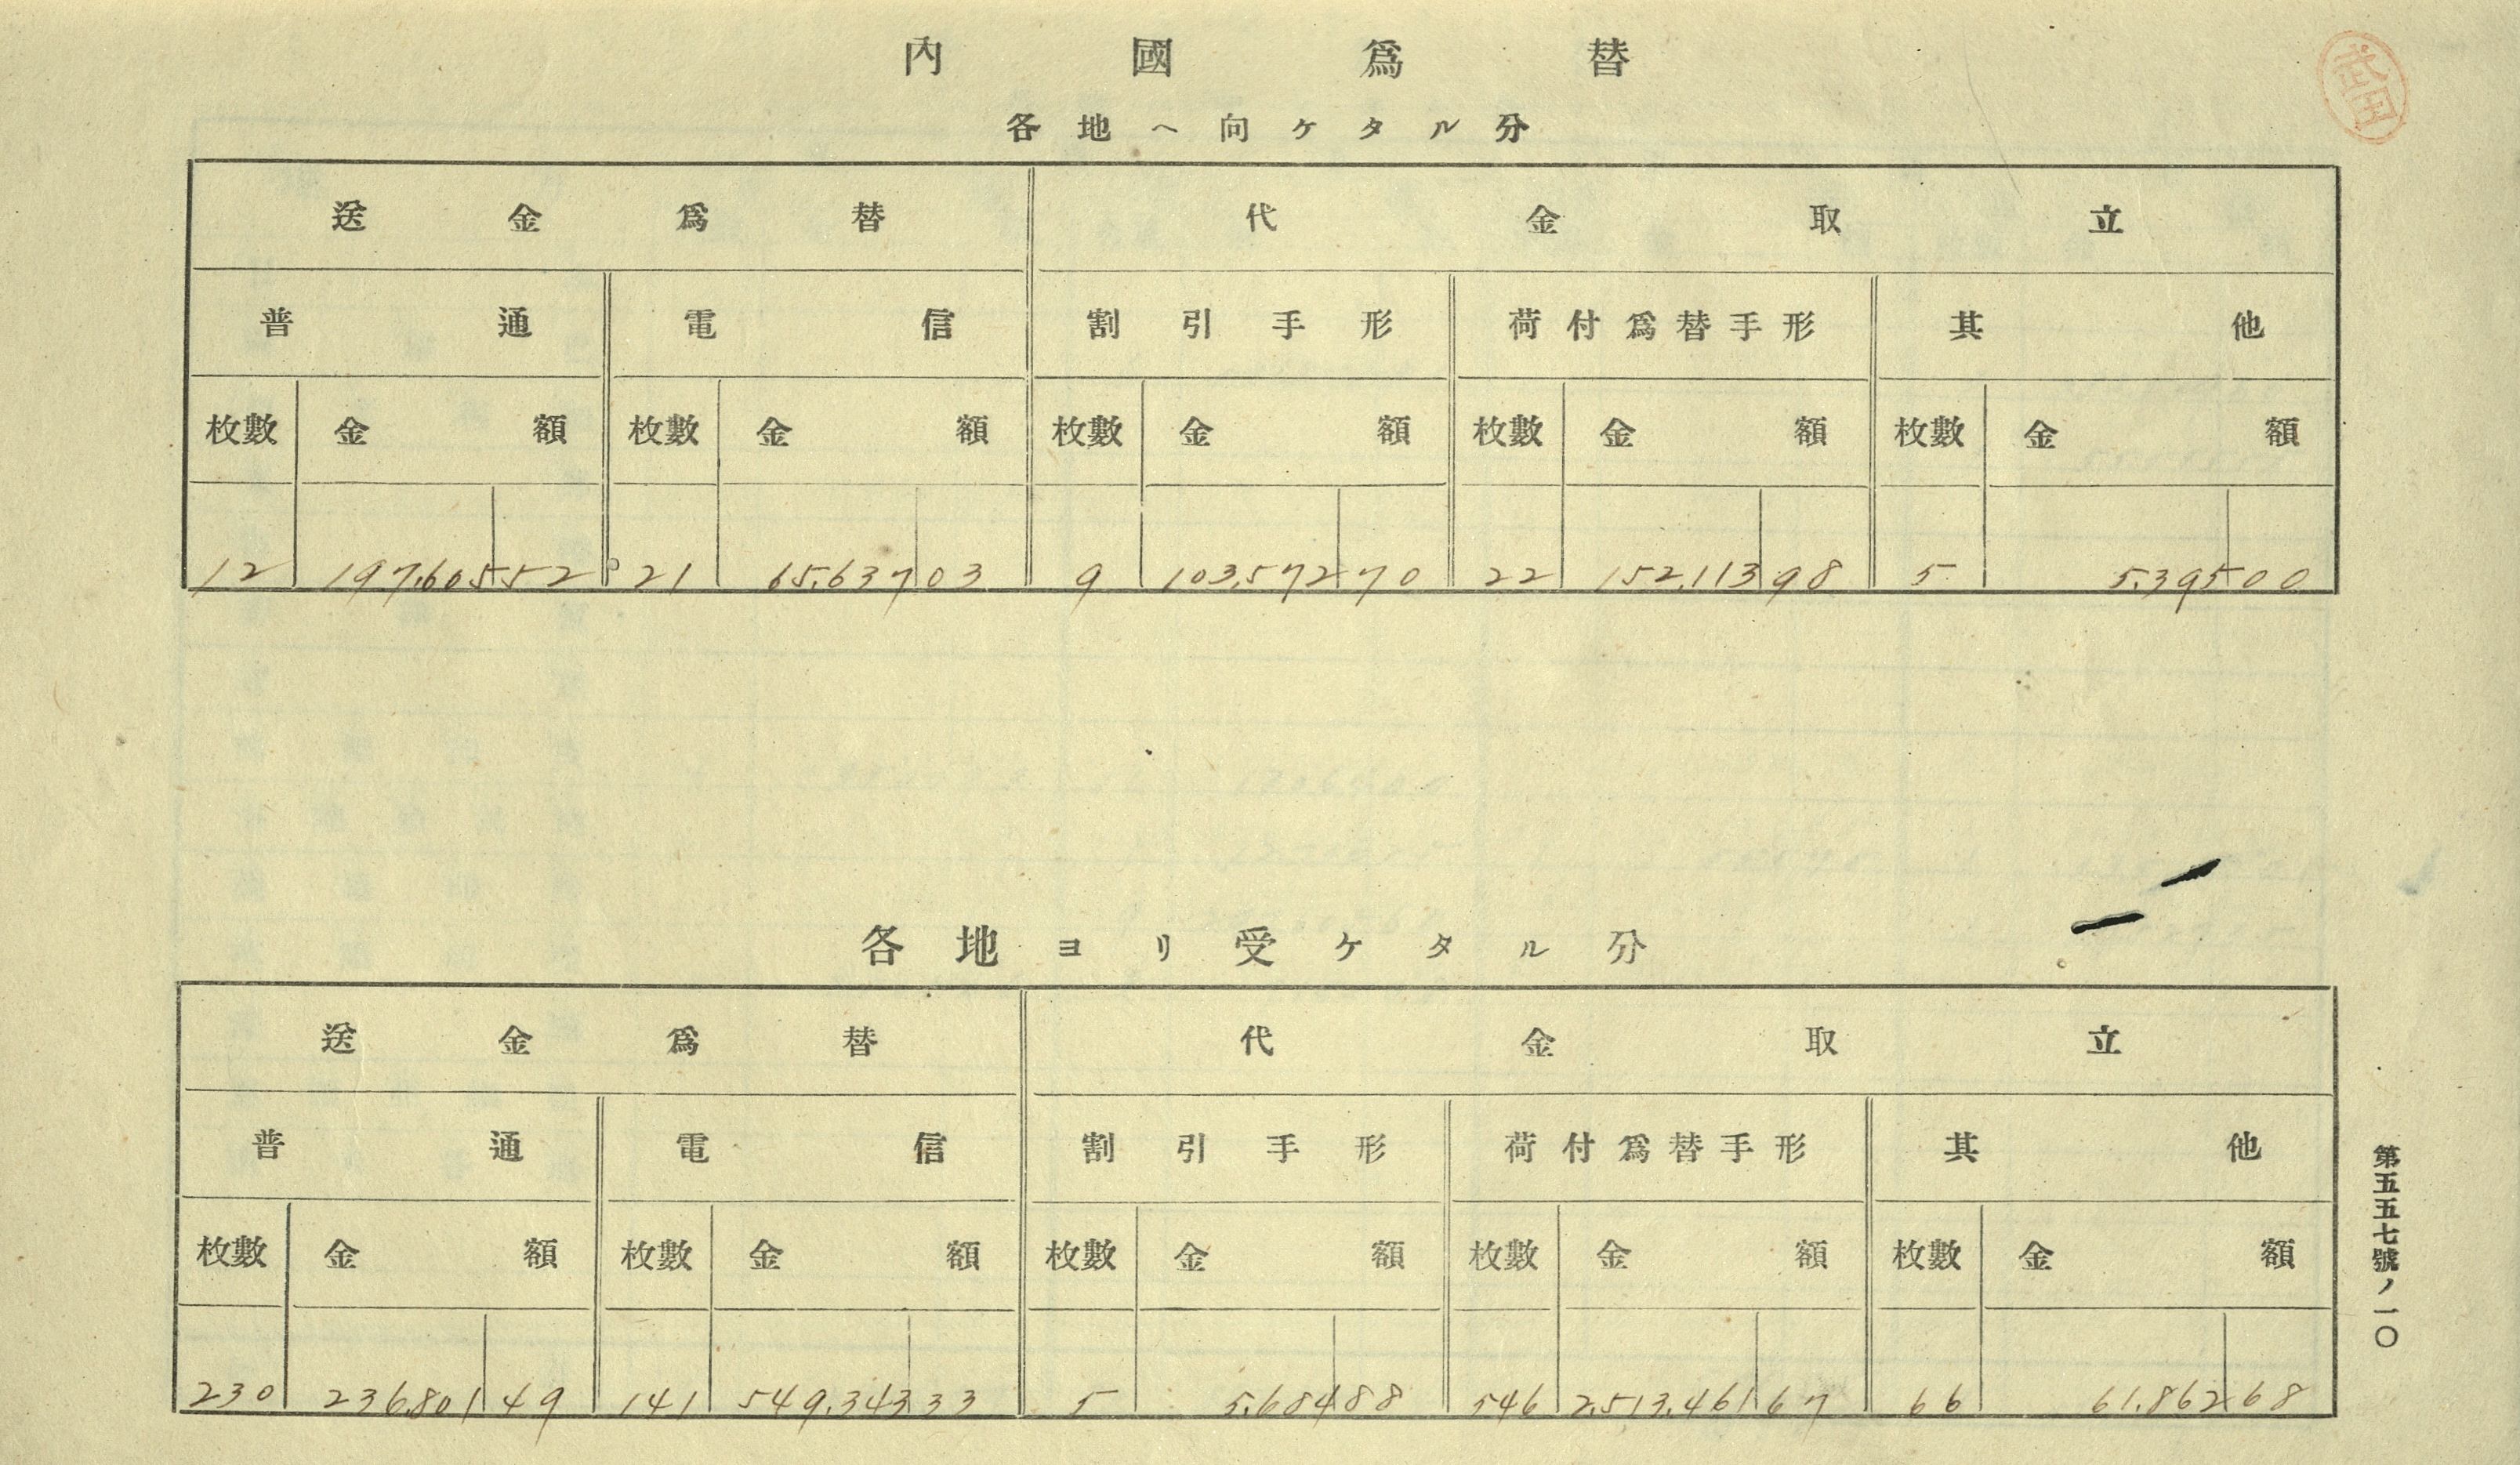 內國爲替
武田
各地ヘ向ケタル分
送金爲替 代金取立
普通 電信 割引手形 荷付爲替手形 其他
枚數 金額 枚數 金額 枚數 金額 枚數 金額 枚數 金額
12 197,605 52 21 65,637 03 9 103,572 70 22 152,113 98 5 5,395 00
各地ヨリ受ケタル分
送金爲替 代金取立
普通 電信 割引手形 荷付爲替手形 其他
枚數 金額 枚數 金額 枚數 金額 枚數 金額 枚數 金額
230 236,801 49 141 549,343 33 5 5,684 88 546 2,513,461 67 66 61,862 68
第五五七號ノ一〇